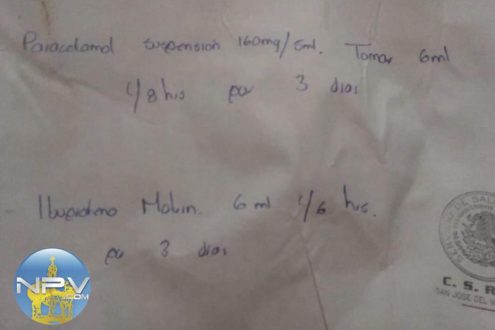 Paracetamol suspensión 160mg/5ml. Tomar 6ml
c/8 hrs por 3 dias
Ibuprofeno Motrin. 6 ml c/6 hrs.
por 3 dias
NPV
.COM
C. S. R
SAN JOSE DEL